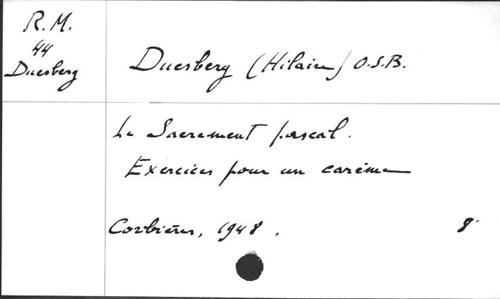 R.M.
44
Duesberg
Duesberg (Hilaire) O.S.B.
Le Sacrement pascal.
Exercices pour un carême
Corbières, 1948.
8°